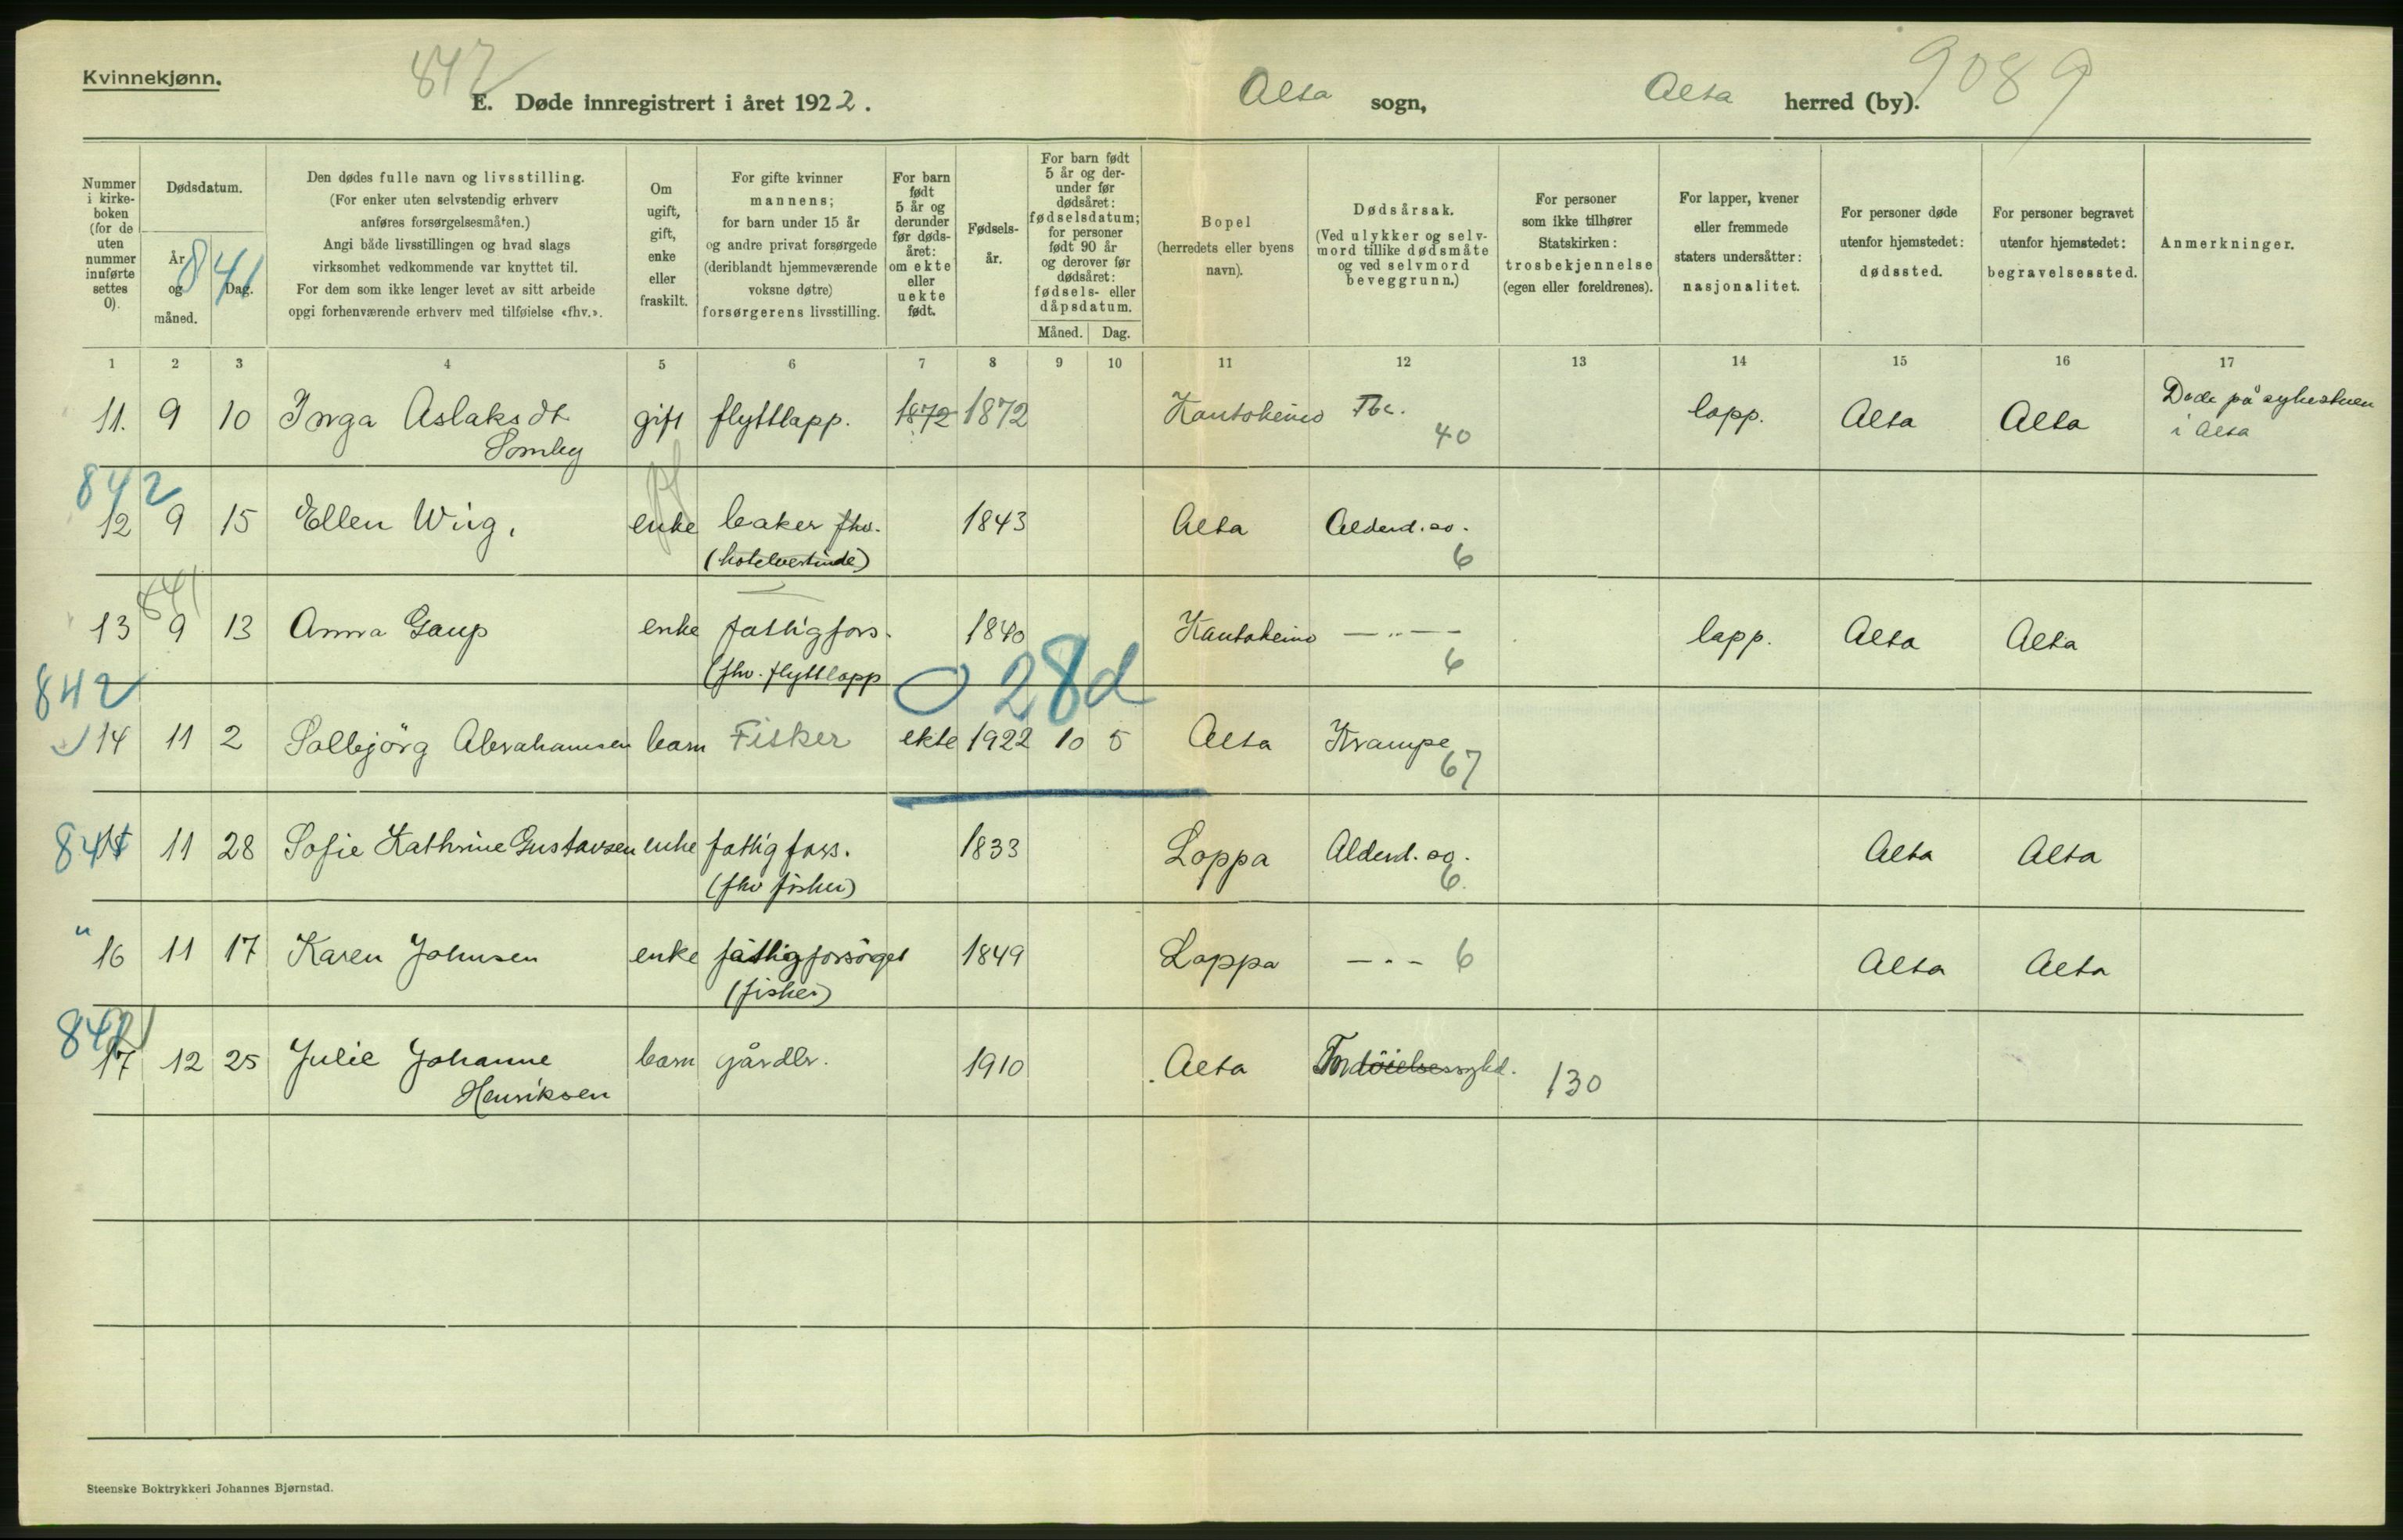 Kvinnekjønn.
842
9089
E. Døde innregistrert i året 1922. Alta sogn, Alta herred (by).
Nummer i kirkeboken (for de uten nummer innførte settes 0).
Dødsdatum.
År og måned.
Dag.
841
Den dødes fulle navn og livsstilling.
(For enker uten selvstendig erhverv
anføres forsørgelsesmåten.)
Angi både livsstillingen og hvad slags
virksomhet vedkommende var knyttet til.
For dem som ikke lenger levet av sitt arbeide
opgi forhenværende erhverv med tilføielse «fhv.».
Om
ugift,
gift,
enke
eller
fraskilt.
For gifte kvinner
mannens;
for barn under 15 år
og andre privat forsørgede
(deriblandt hjemmeværende
voksne døtre)
forsørgerens livsstilling.
For barn
født
5 år og
derunder
før døds-
året:
om ekte
eller
uekte
født.
Fødsels-
år.
For barn født
5 år og der-
under før
dødsåret:
fødselsdatum;
for personer
født 90 år
og derover før
dødsåret:
fødsels- eller
dåpsdatum.
Måned. Dag.
Bopel
(herredets eller byens
navn).
Dødsårsak.
(Ved ulykker og selv-
mord tillike dødsmåte
og ved selvmord
beveggrunn.)
For personer
som ikke tilhører
Statskirken:
trosbekjennelse
(egen eller foreldrenes).
For lapper, kvener
eller fremmede
staters undersåtter:
nasjonalitet.
For personer døde
utenfor hjemstedet:
dødssted.
For personer begravet
utenfor hjemstedet:
begravelsessted.
Anmerkninger.
1 2 3 4 5 6 7 8 9 10 11 12 13 14 15 16 17
11. 9 10 Inga Aslaksdt gift flyttlapp. 1872 1872 Kautokeino Tbc. lapp. Alta Alta Døde på sykestuen
Somby 40 i Alta
842
12 9 15 Ellen Wiig, enke baker fhv. 1843 Alta Alderd. so.
(hotelvertinde) 6
841
13 9 13 Anna Gaup enke fattigfors. 1840 Kautokeino — „ — lapp. Alta Alta
(fhv. flyttlapp 6
842 0 28d
14 11 2 Solbjörg Abrahamsen barn Fisker ekte 1922 10 5 Alta Krampe
67
844 11 28 Sofie Kathrine Gustavsen enke fattig fors. 1833 Loppa Alderd. so. Alta Alta
(fhv fisker) 6
" 16 11 17 Karen Johnsen enke fattigforsörget 1849 Loppa — „ — 6 Alta Alta
(fisker)
842
17 12 25 Julie Johanne barn gårdbr. 1910 Alta Fordöielsessykd. 130
Henriksen
Steenske Boktrykkeri Johannes Bjørnstad.